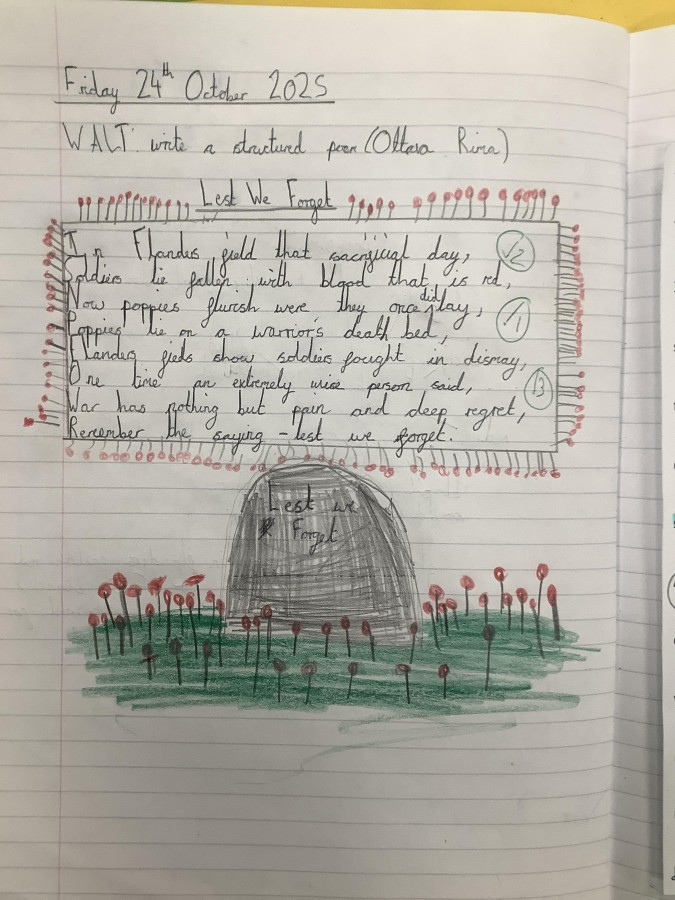 Friday 24th October 2025
WALT: write a structured poem (Ottava Rima)
Lest We Forget
In Flanders field that sacrificial day, √2
Soldiers lie fallen, with blood that is red,
Now poppies flurish were they once did play, √1
Poppies lie on a warrior's death bed,
Flanders fieds show soldiers fought in dismay,
One time an extremely wise person said, √3
War has nothing but pain and deep regret,
Remember the saying - lest we forget.
Lest we
Forget